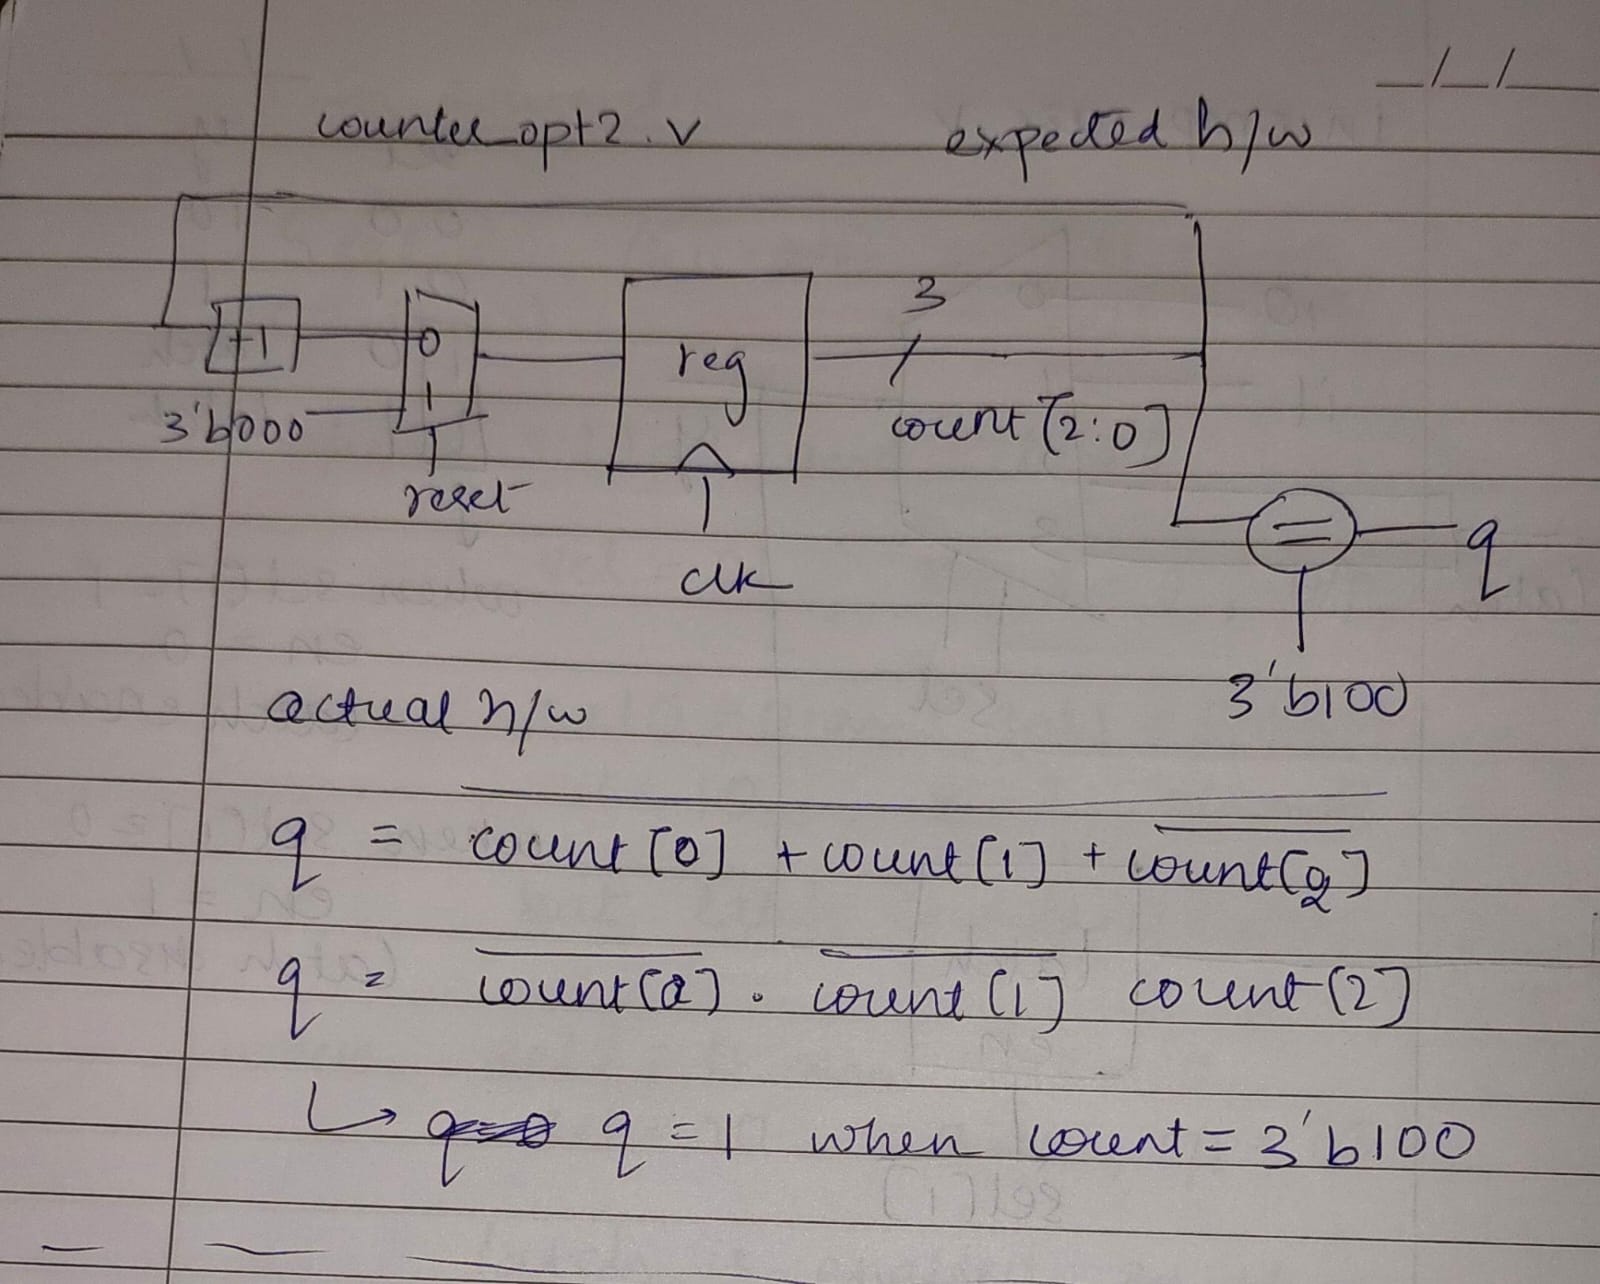 _/_/_
counter_opt2.v expected h/w
3
+1 0 reg
1
3'b000 count [2:0]
reset
= q
clk
3'b100
actual h/w
q = \overline{count [0] + count [1] + \overline{count[2]}}
q = \overline{count[0]} . \overline{count [1]} count [2]
↳ q=1 when count = 3'b100